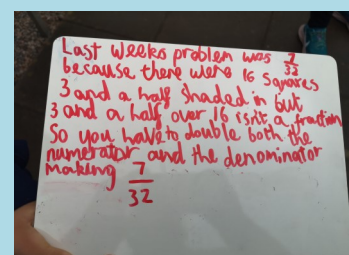 Last weeks problem was 7/32
because there were 16 squares
3 and a half shaded in but
3 and a half over 16 isn't a fraction
So you have to double both the
numerator and the denominator
making 7/32